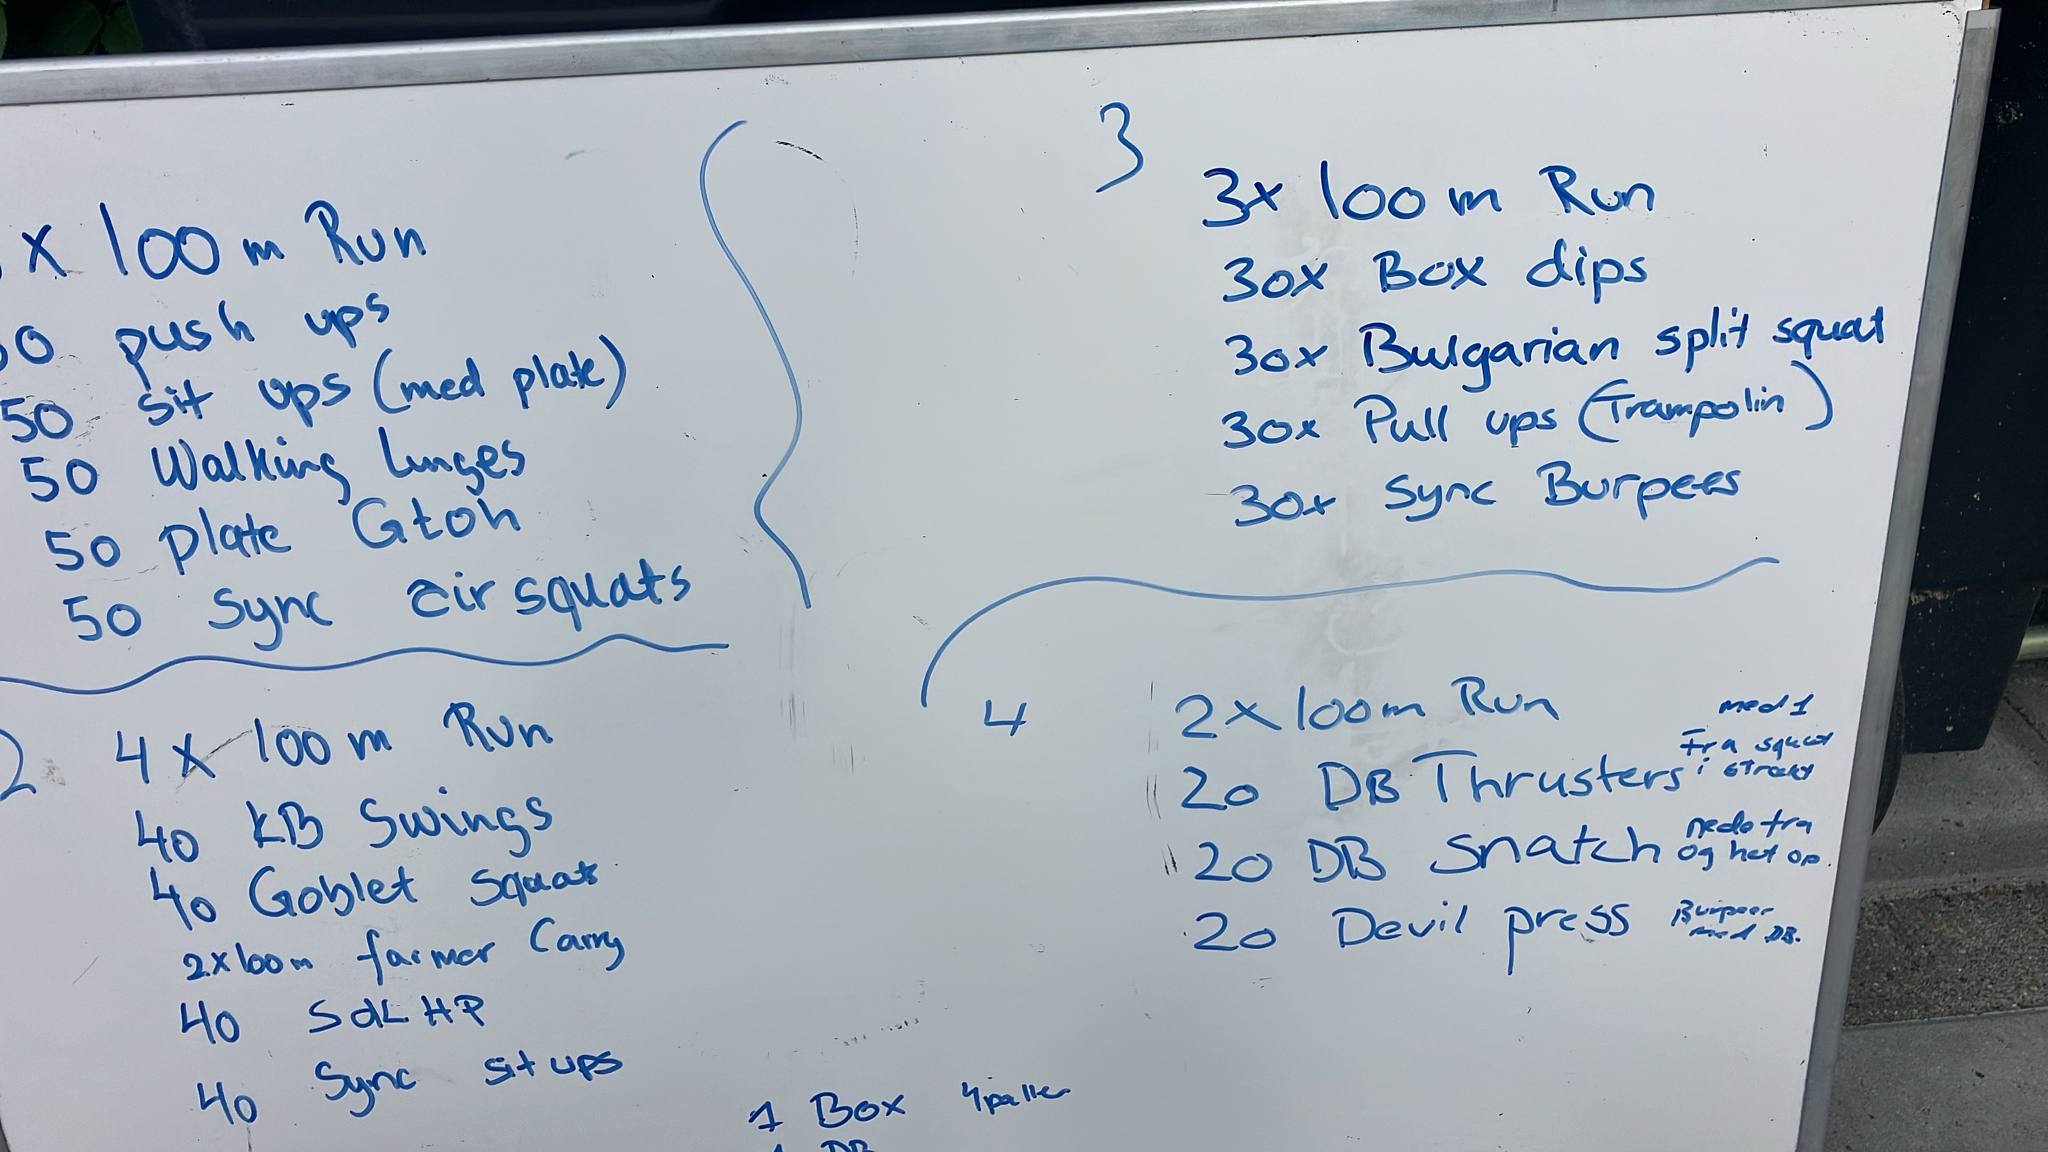 x 100 m Run
50 push ups
50 sit ups (med plate)
50 Walking lunges
50 plate Gtoh
50 Sync air squats
2
4 x 100 m Run
40 KB Swings
40 Goblet squats
2x100m farmer Carry
40 SdL HP
40 Sync sit ups
3
3x 100 m Run
30x Box dips
30x Bulgarian split squat
30x Pull ups (Trampolin)
30x Sync Burpees
4
2 x 100m Run
20 DB Thrusters med 1
fra squat
i stræk
20 DB Snatch nede fra
og helt op
20 Devil press Burpees
med DB.
1 Box 4 paller
1 DB